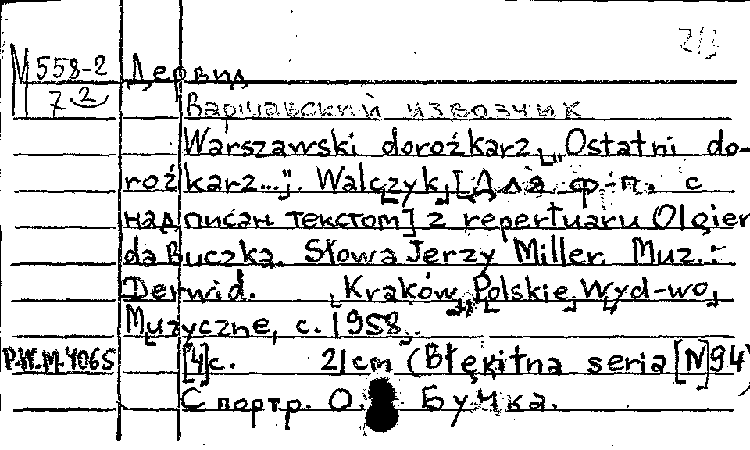 М 558-2 Дервид
7 2
Варшавский извозчик
Warszawski dorożkarz „Ostatni do-
rożkarz...". Walczyk, [Для ф-п. с
надписан текстом] z repertuaru Olgier
da Buczka. Słowa Jerzy Miller. Muz.:
Derwid. Kraków, Polskie Wyd-wo
Muzyczne, c. 1958.
P.W.M.4065 [4]c. 21cm (Błękitna seria [N]94)
С портр. О. Бучка.